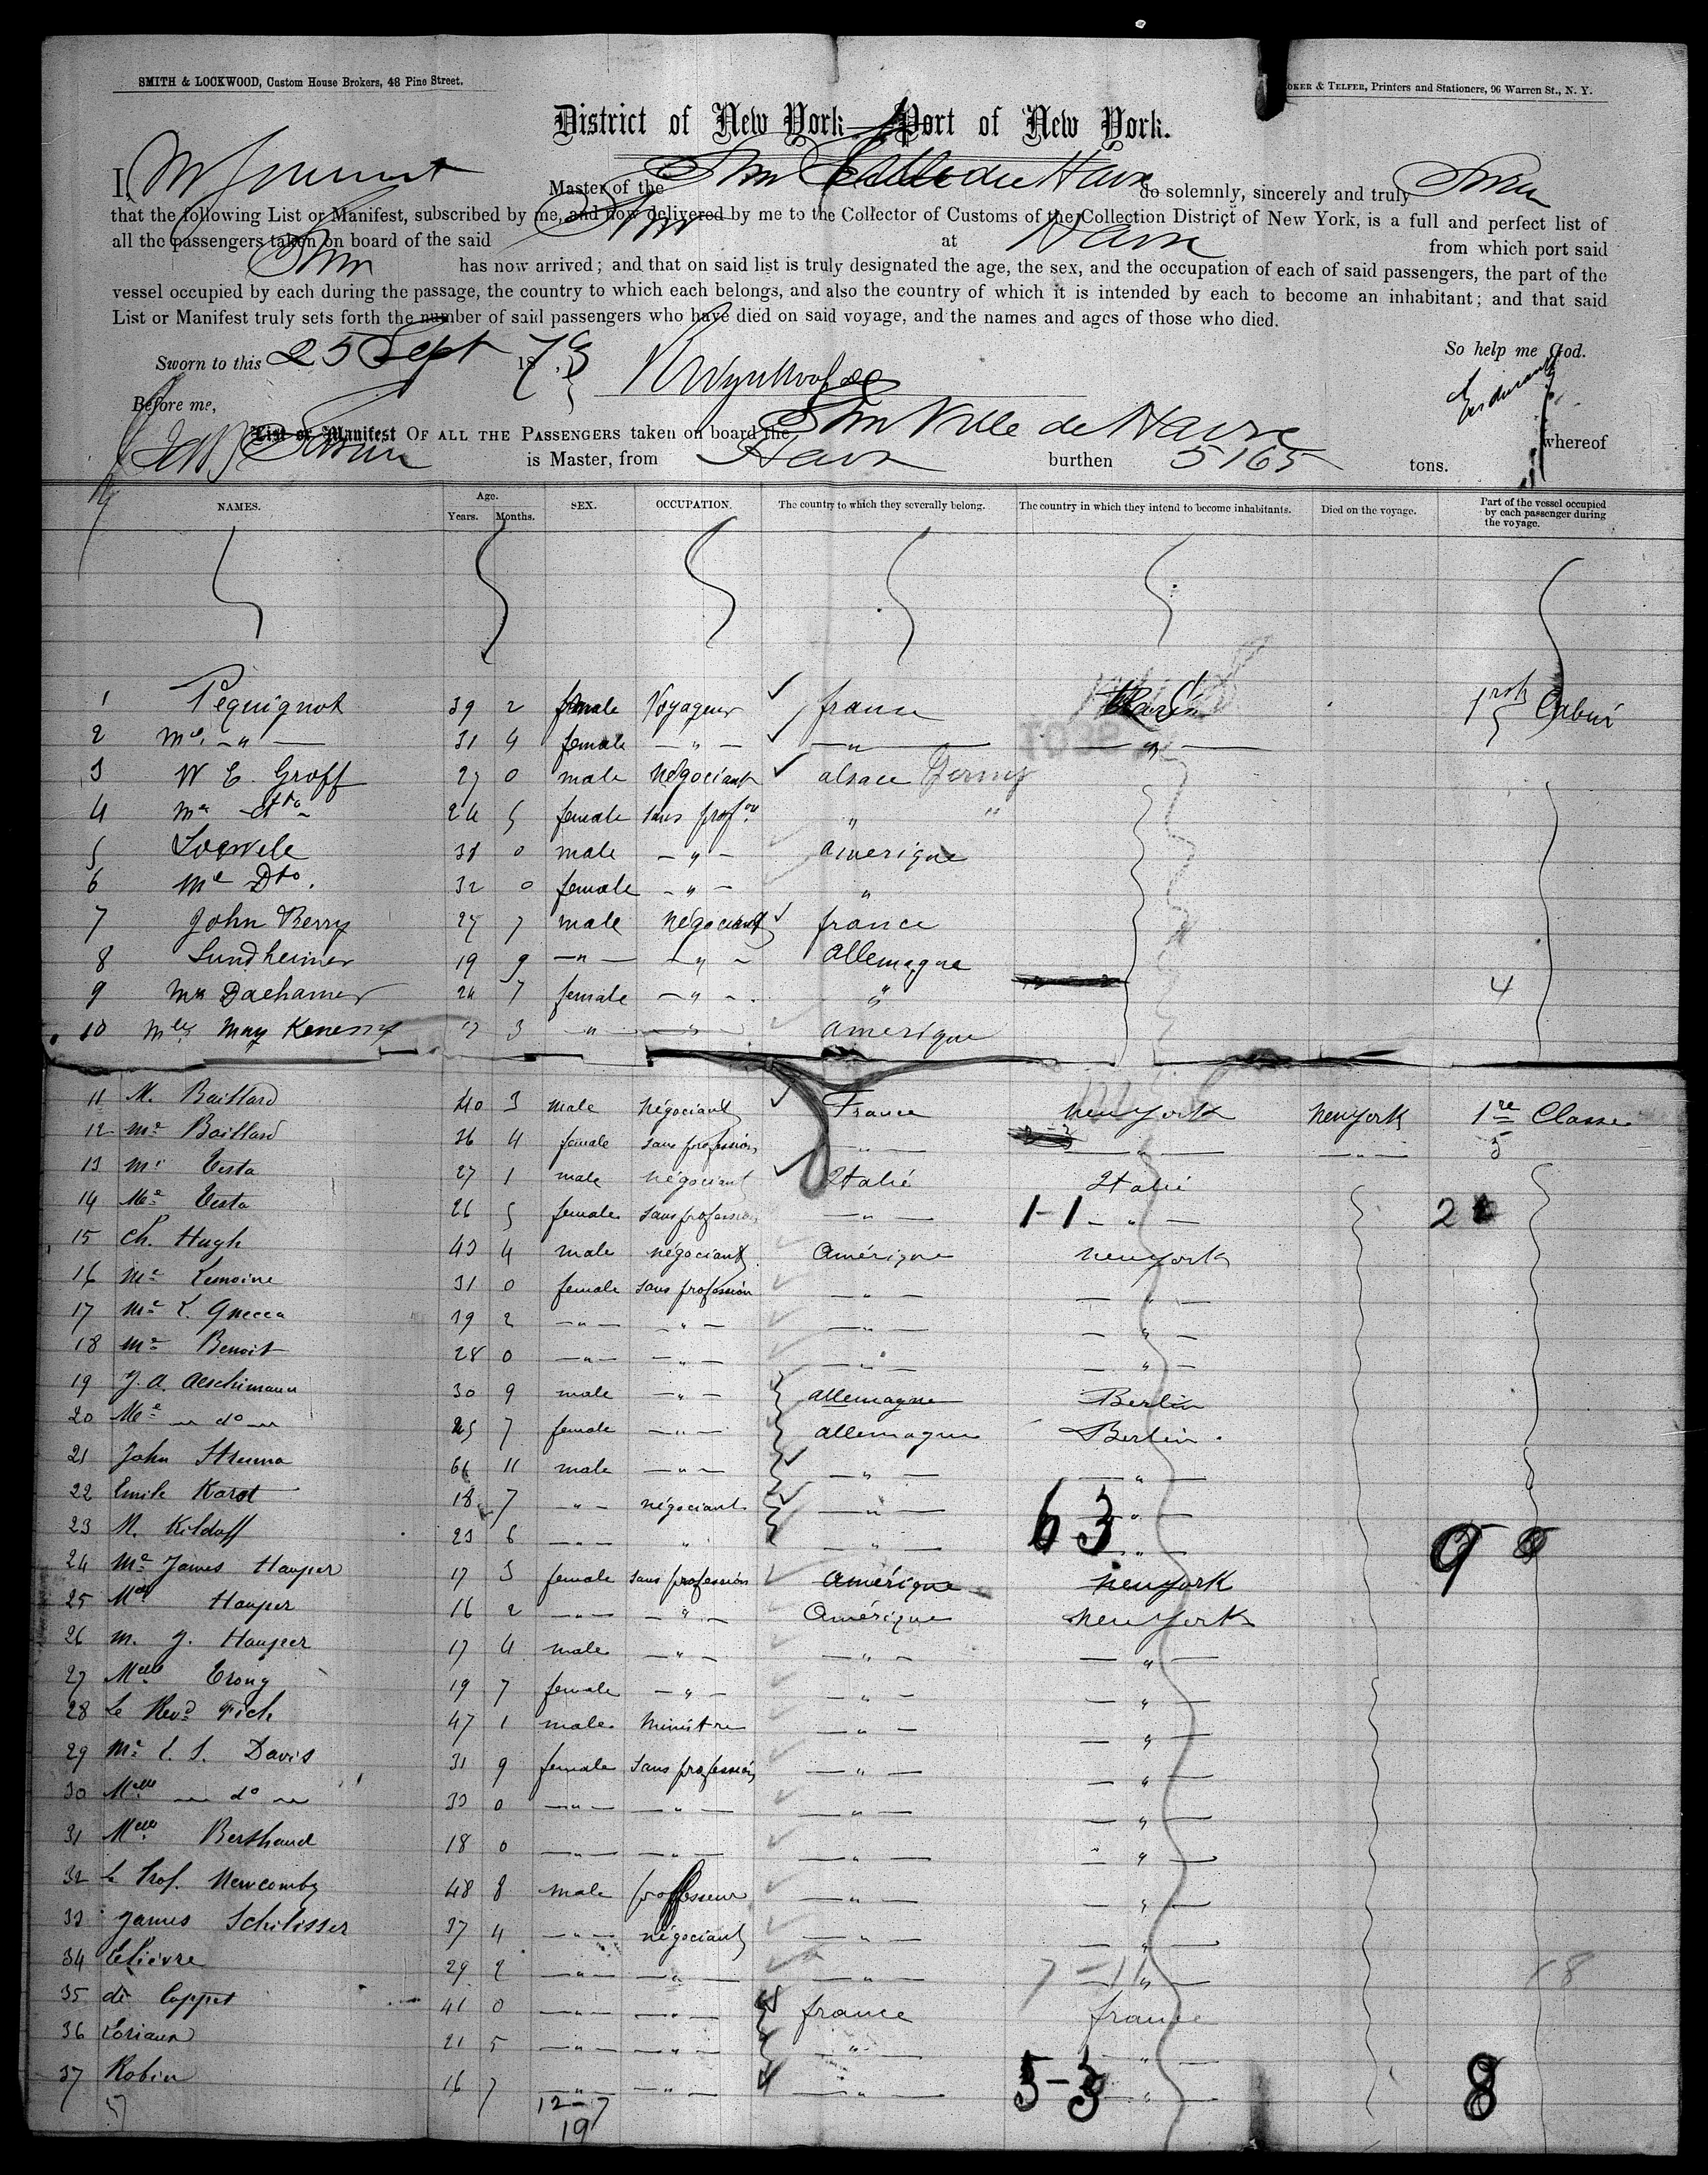 SMITH & LOCKWOOD, Custom House Brokers, 48 Pine Street.
OKER & TELFER, Printers and Stationers, 96 Warren St., N. Y.
District of New York Port of New York.
I, Master of the Stm Ville du Havre do solemnly, sincerely and truly Swear
that the following List or Manifest, subscribed by me, and now delivered by me to the Collector of Customs of the Collection District of New York, is a full and perfect list of
all the passengers taken on board of the said Stm at Havre from which port said
Stm has now arrived; and that on said list is truly designated the age, the sex, and the occupation of each of said passengers, the part of the
vessel occupied by each during the passage, the country to which each belongs, and also the country of which it is intended by each to become an inhabitant; and that said
List or Manifest truly sets forth the number of said passengers who have died on said voyage, and the names and ages of those who died.
Sworn to this 25 Sept 1873 So help me God.
Before me,
List or Manifest OF ALL THE PASSENGERS taken on board the Stm Ville de Havre whereof
is Master, from Havre burthen 5165 tons.
NAMES. Age. Years. Months. SEX. OCCUPATION. The country to which they severally belong. The country in which they intend to become inhabitants. Died on the voyage. Part of the vessel occupied by each passenger during the voyage.
1 Pequignot 39 2 male Voyageur france 1rst Cabin
2 Me - " - 31 4 female - " - - " - - " -
3 W E. Groff 27 0 male négociant alsace Germy
4 Me - dto - 24 5 female sans profon " "
5 38 0 male - " - amerique
6 Me Dto. 32 0 female - " - "
7 John Berry 27 7 male négociant france
8 Sundheimer 19 9 - " - - " - allemagne
9 Me Dachamer 24 7 female - " - " 4
10 Mlle May 17 3 - " - - " - amerique
11 M. Baillard 40 3 male négociant France new york new york 1re Classe
12 Me Baillard 36 4 female sans profession - " - - " - - " - 5
13 Mr Testa 27 1 male négociant Italie Italie
14 Me Testa 26 5 female sans profession - " - 1-1 - " - 2
15 Ch. Hugh 43 4 male négociant Amérique new york
16 Me Lemoine 31 0 female sans profession - " - - " -
17 Me L. Gnecca 39 2 - " - - " - - " - - " -
18 Me Benoit 28 0 - " - - " - - " - - " -
19 J. A. Aeschimann 30 9 male - " - allemagne Berlin
20 Me - do - 25 7 female - " - allemagne Berlin.
21 John Streuna 61 11 male - " - - " - - " -
22 Emile Karst 18 7 - " - négociant - " - - " -
23 M. Kildoff 23 6 - " - " - " - 63 - " - 9
24 Me James Hauper 17 3 female sans profession Amérique new york
25 Mlle Hauper 16 2 - " - - " - Amérique new york
26 M. J. Hauper 17 4 male - " - - " - - " -
27 Melle Trony 19 7 female - " - - " - - " -
28 Le Revd Fich 47 1 male Ministre - " - - " -
29 Me E. S. Davis 31 9 female sans profession - " - - " -
30 Melle - do - 33 0 - " - - " - - " - - " -
31 Melle Berthaud 18 0 - " - - " - - " - - " -
32 Le Prof. Newcomby 48 8 male professeur - " - - " -
33 James Schilisser 37 4 - " - négociant - " - - " -
34 Lelièvre 29 2 - " - - " - - " - 7-11 - " - 18
35 de Coppet 41 0 - " - - " - france france
36 Loriaux 21 5 - " - - " - - " - - " -
37 Robin 16 7 - " - - " - - " - 5-3 - " - 8
12-7
19